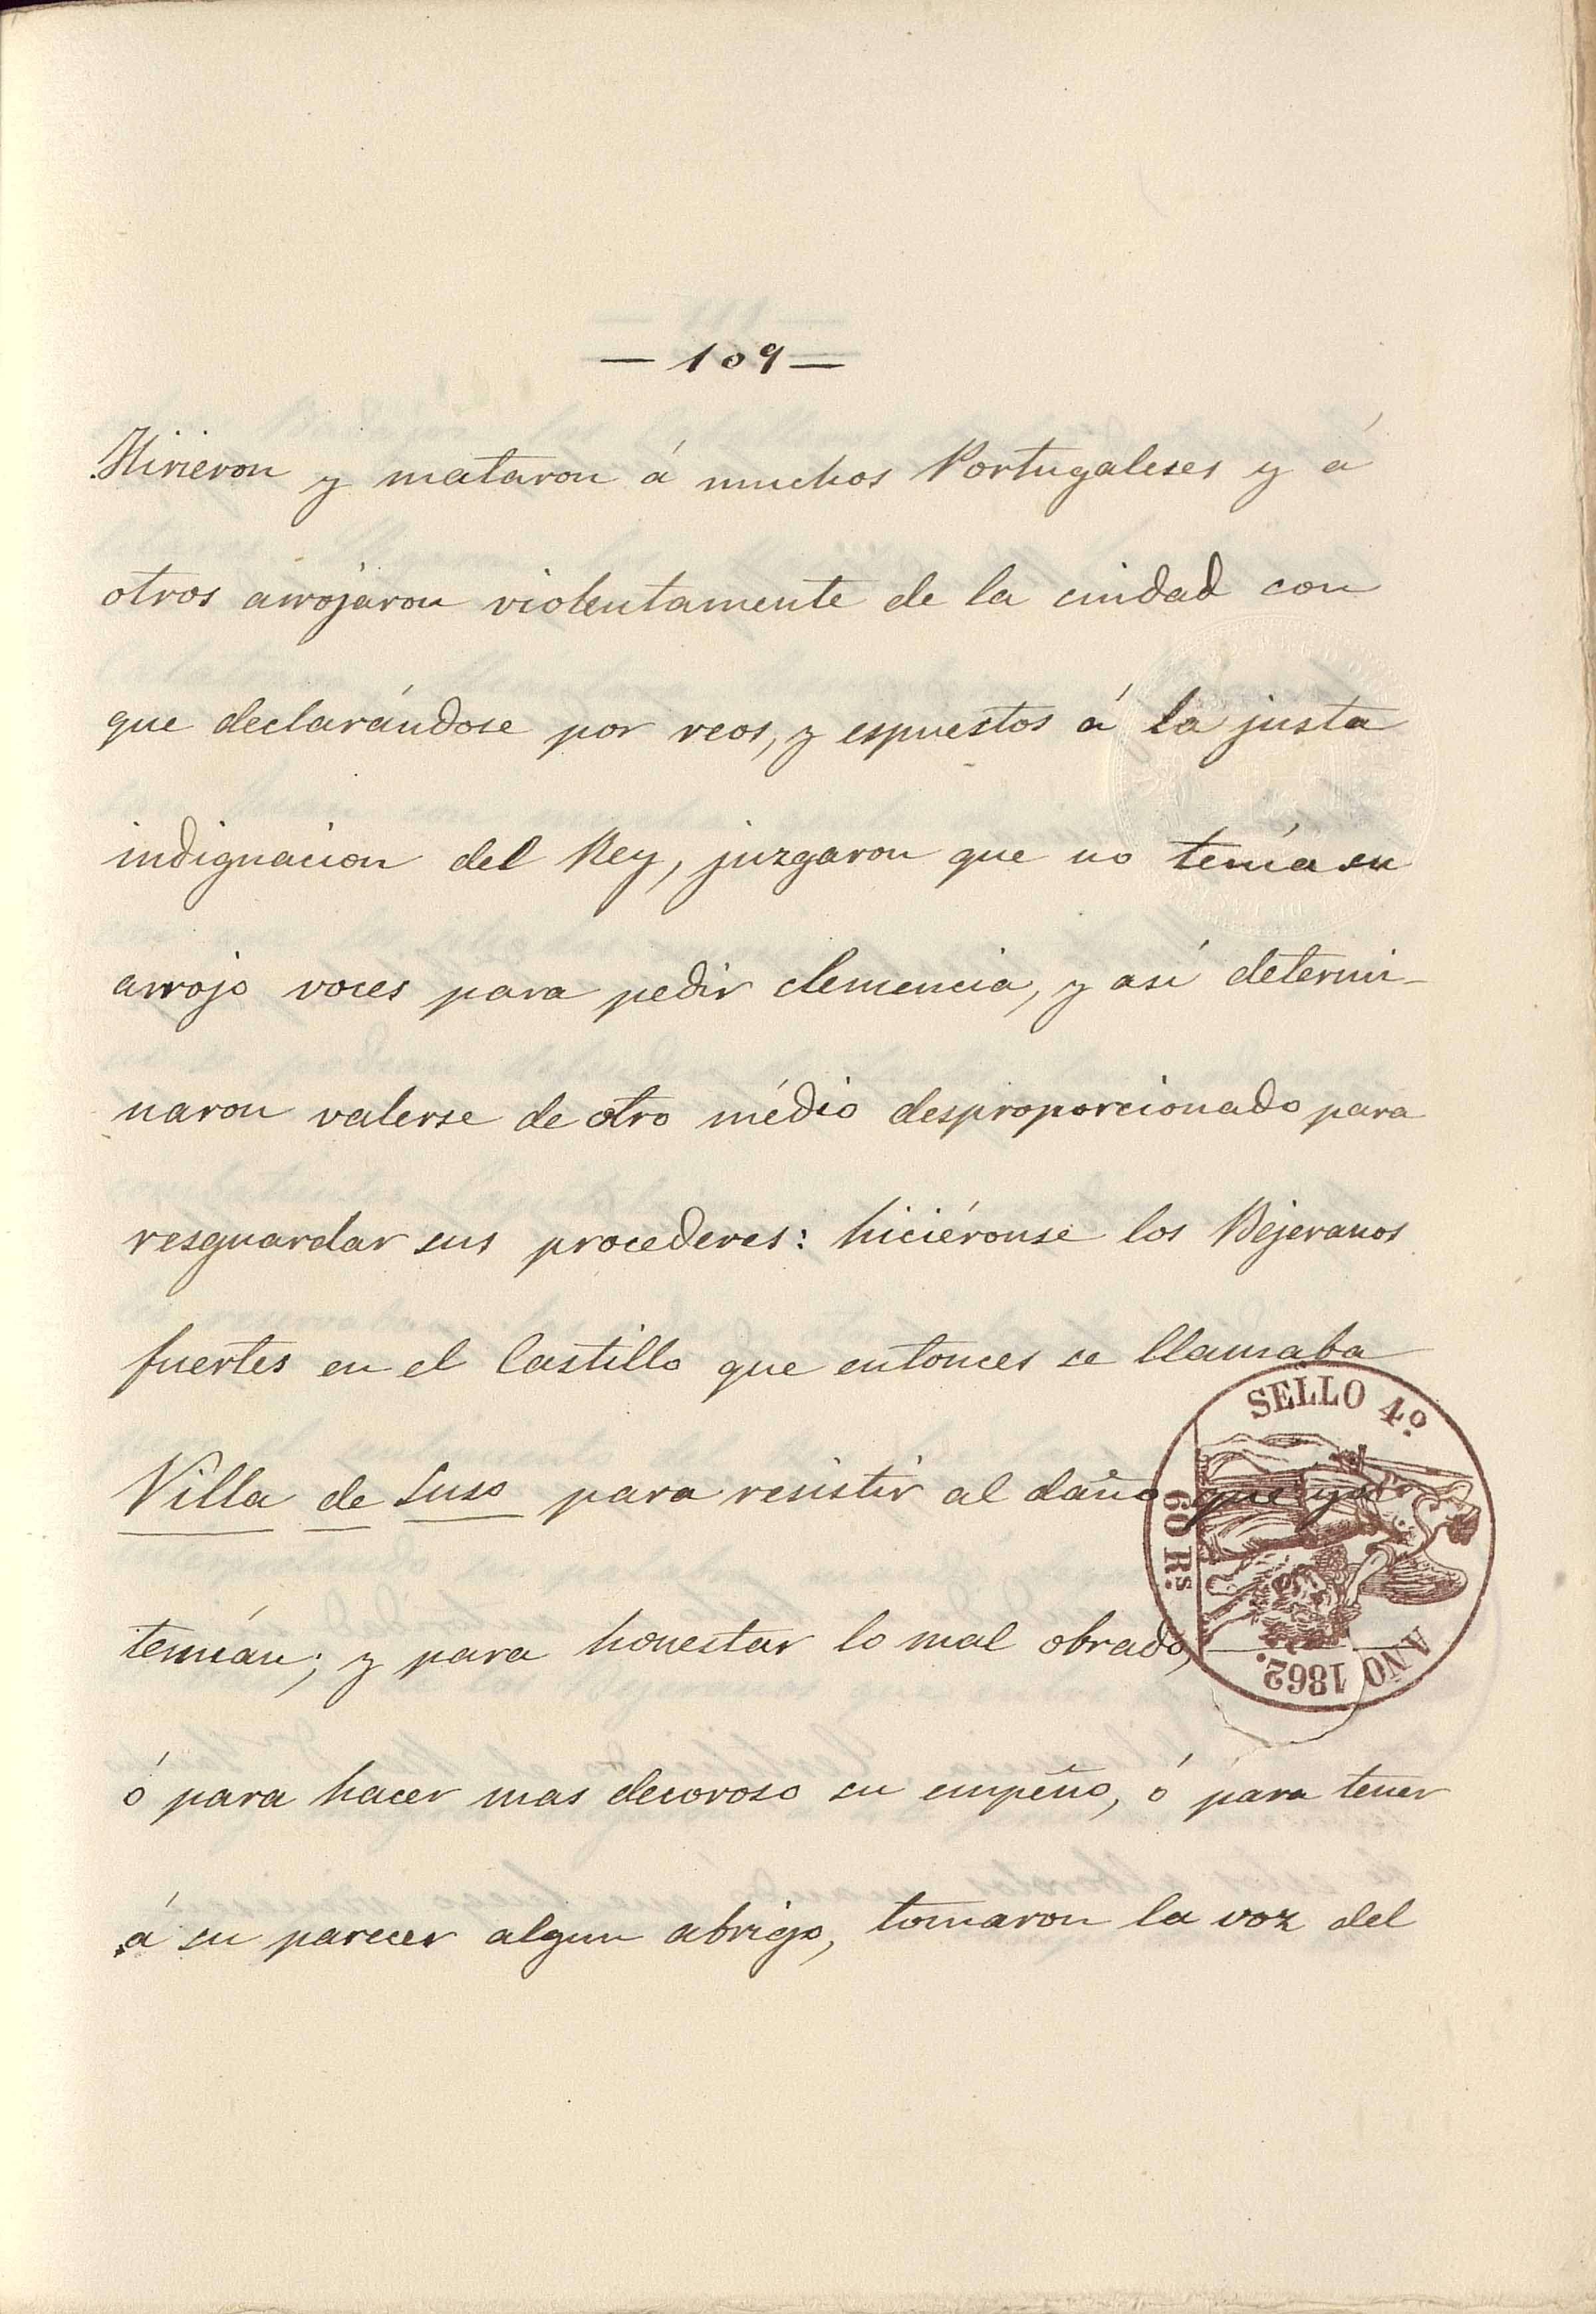 — 109 —
Hirieron y mataron á muchos Portugaleses y á
otros arrojaron violentamente de la ciudad con
que declarándose por reos, y espuestos á la justa
indignacion del Rey, juzgaron que no tenía su
arrojo voces para pedir clemencia, y así determi-
naron valerse de otro médio desproporcionado para
resguardar sus procederes: hiciéronse los Bejeranos
fuertes en el Castillo que entonces se llamaba
Villa de Suso para resistir al daño que ya
temían; y para honestar lo mal obrado,
ó para hacer mas decoroso su empeño, ó para tener
á su parecer algun abrigo, tomaron la voz del
SELLO 4.º
60 Rs.
AÑO 1862.